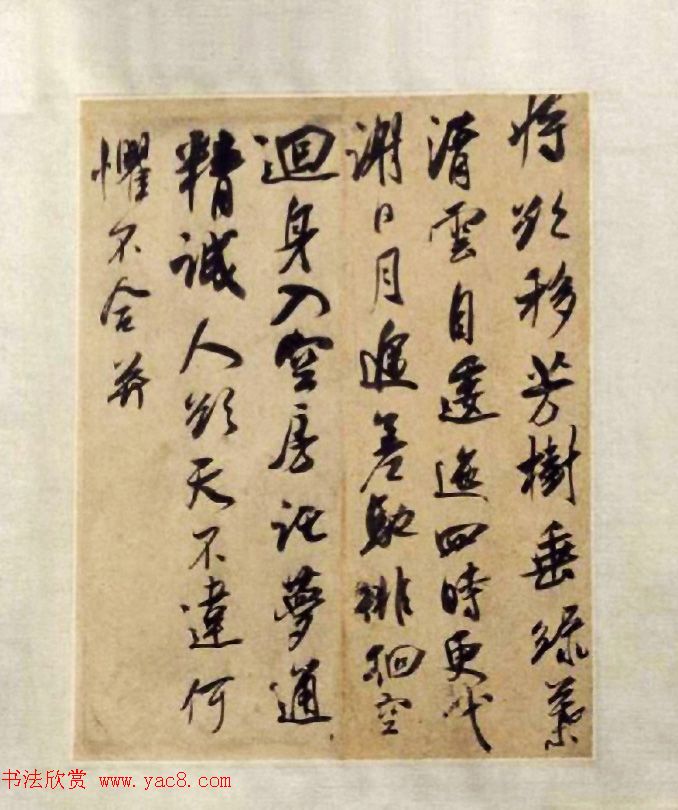 將欲移芳樹垂綠葉
清雲自逶迤四時更代
謝日月遞差馳徘徊空
迴身入空房託夢通
精誠人欲天不違何
懼不合并
书法欣赏 www.yac8.com